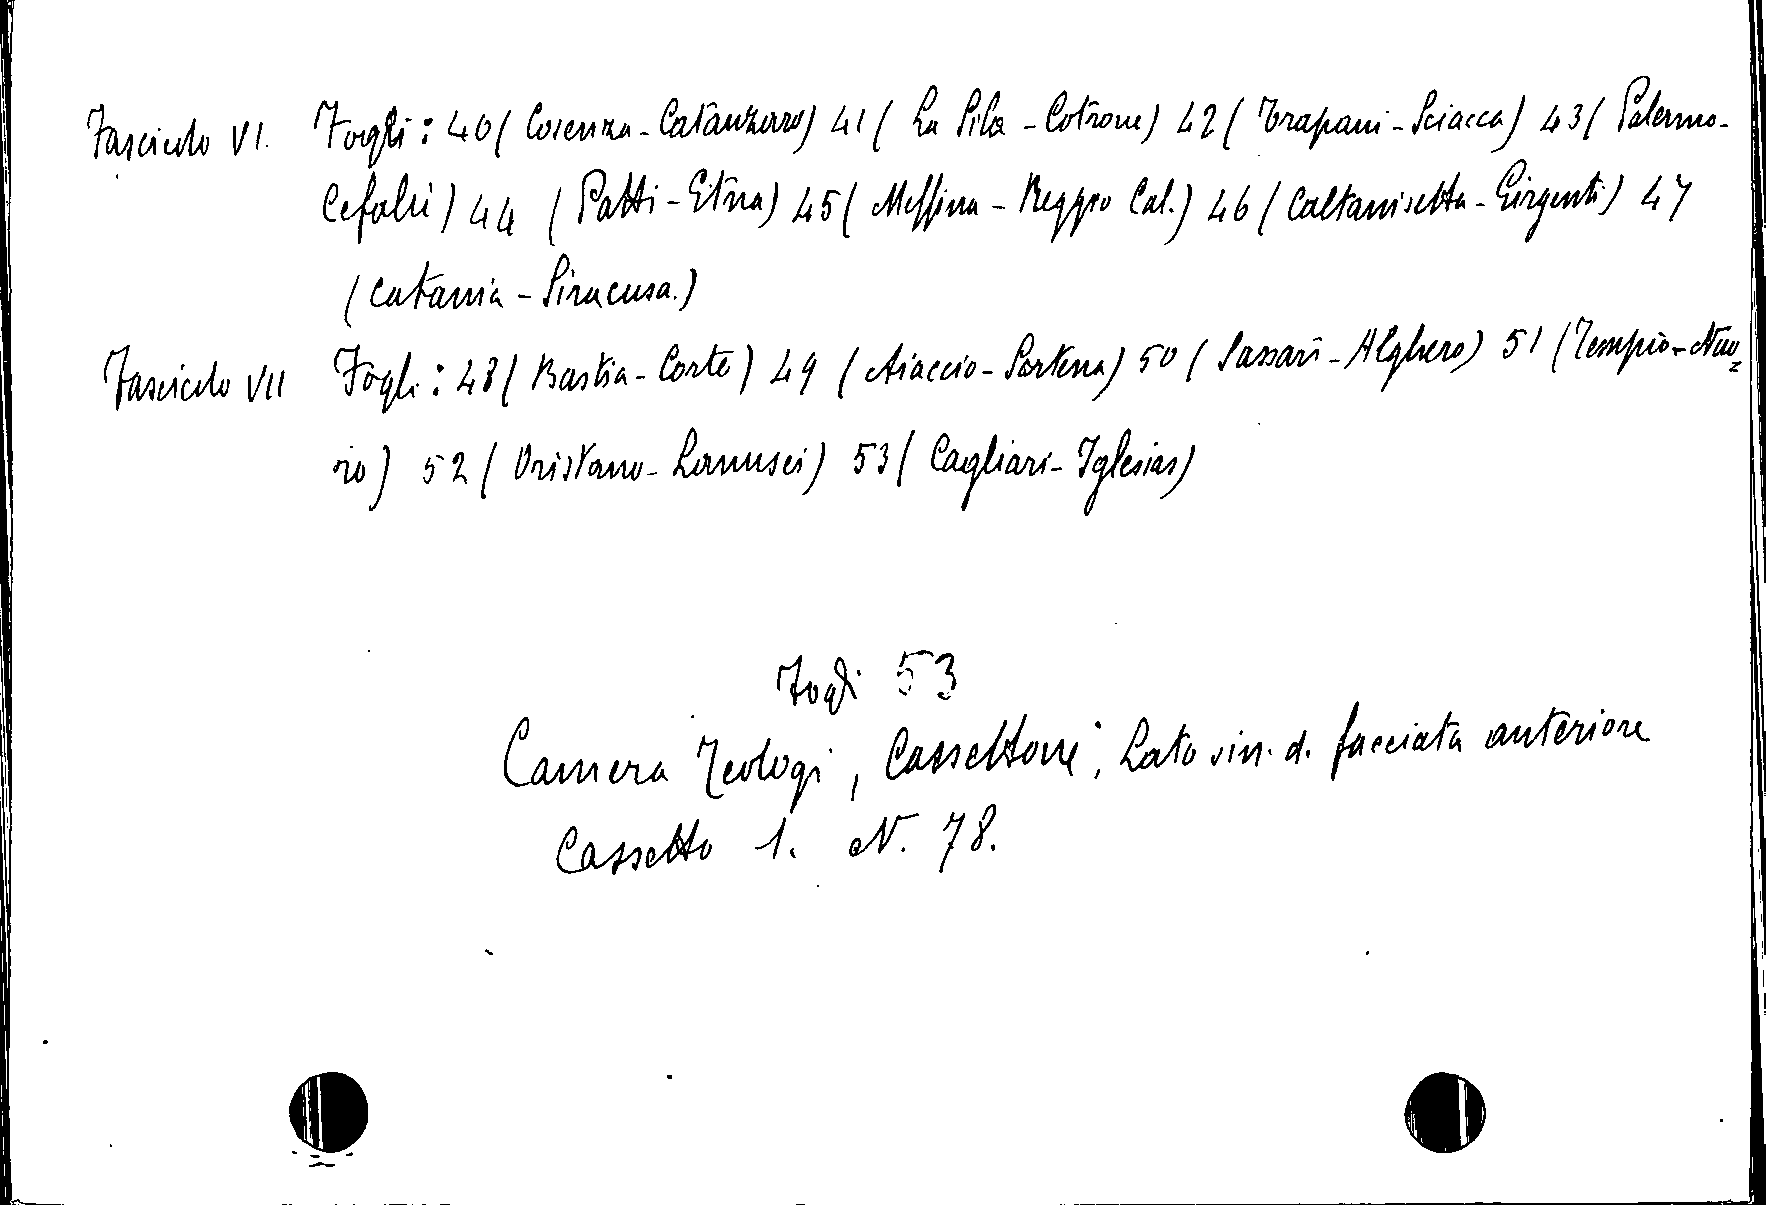 Fascicolo VI. Fogli: 40 (Cosenza-Catanzaro) 41 (La Sila - Cotrone) 42 (Trapani-Sciacca) 43 (Palermo-
Cefalù) 44 (Patti-Etna) 45 (Messina-Reggio Cal.) 46 (Caltanisetta-Girgenti) 47
(Catania-Siracusa.)
Fascicolo VII Fogli: 48 (Bastia-Corte) 49 (Aiaccio-Sartena) 50 (Sassari-Alghero) 51 (Tempio-Nuo=
ro) 52 (Oristano-Lanusei) 53 (Cagliari-Iglesias)
Fogli 53
Camera Teologi, Cassettone, Lato sin. d. facciata anteriore
Cassetto 1. N. 78.